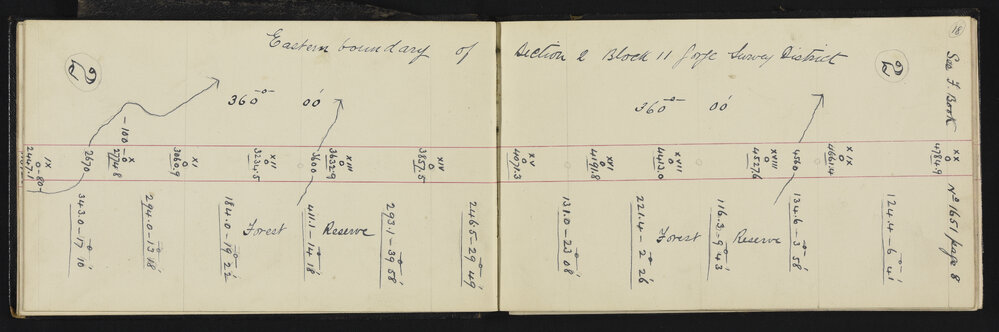 18
Eastern boundary of Section 2 Block 11 Gorge Survey District
See F. Book No 1651 page 8
360° 00'
360° 00'
IX
0-80-
2447.1
2670
-100-0
X
2774.8
XI
3060.9
XII
3234.5
3600
XIII
3632.9
XIV
3857.5
XV
4097.3
XVI
4191.8
XVII
4412.0
XVIII
4527.6
4560
XIX
4661.4
XX
4784.9
343.0 - 17° 10'
294.0 - 13° 18'
184.0 - 19° 22'
411.1 - 14° 18'
293.1 - 39° 58'
246.5 - 29° 49'
131.0 - 23° 08'
221.4 - 2° 26'
116.3 - 9° 43'
134.6 - 3° 58'
124.4 - 6° 41'
Forest Reserve
Forest Reserve